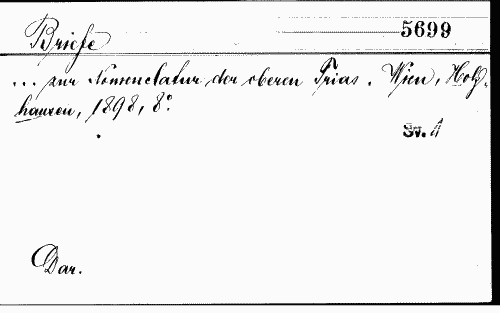 Briefe
5699
... zur Nomenclatur der oberen Trias. Wien, Holz-
hausen, 1898, 8°.
Sv. A
Dar.